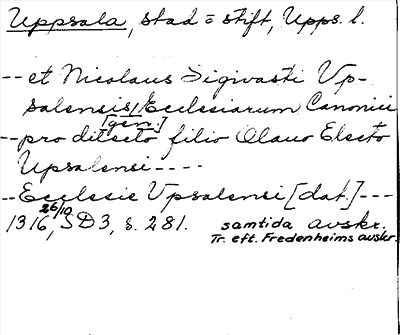 Uppsala, stad o stift, Upps. l.
-- et Nicolaus Sigivasti Vp-
salensis / Ecclesiarum Canonici
[gen.]
-- pro dilecto filio Olauo Electo
Upsalensi ----
-- Ecclesie Vpsalensi [dat.] ---
1316 26/10, SD3, s. 281. samtida avskr.
Tr. eft. Fredenheims avskr.